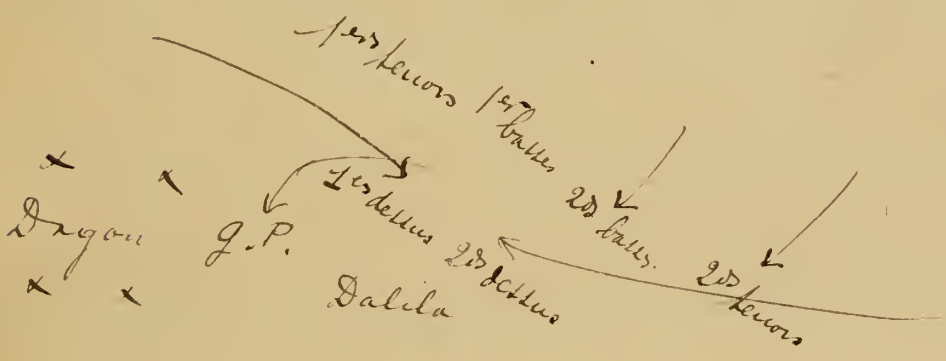 1ers tenors 1ers basses 2ds basses. 2ds tenors
1ers dessus 2ds dessus
Dagon G.P.
Dalila